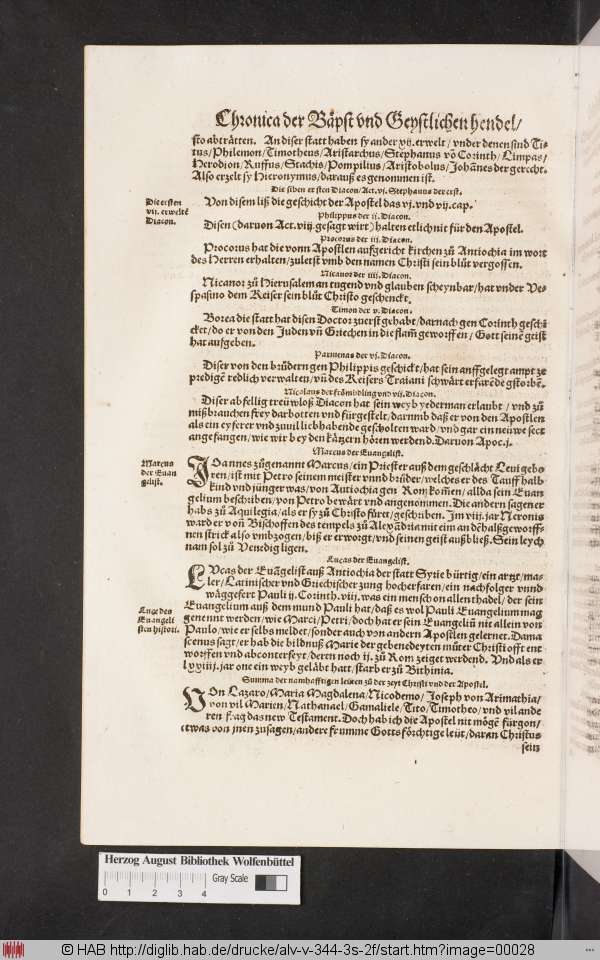 Chronica der Bäpst vnd Geystlichen hendel/
sto abträtten. An diser statt haben sy ander xij. erwelt / vnder denen sind Ti-
tus/Philemon/Timotheus/Aristarchus/Stephanus võ Corinth/Limpas/
Herodion/Ruffus/Stachis/Pompilius/Aristobolus/Johãnes der gerecht.
Also erzelt sy Hieronymus/darauß es genommen ist.
Die siben ersten Diacon/Act.vj. Stephanus der erst.
Die ersten
vij. erwelte
Diacon.
Von disem liß die geschicht der Apostel das vj.vnd vij.cap.
Philippus der ij. Diacon.
Disen (daruon Act.viij.gesagt wirt) halten etlich nit für den Apostel.
Procorus der iij. Diacon.
Procorus hat die vonn Apostlen aufgericht kirchen zů Antiochia im wort
des Herren erhalten/zuletst vmb den namen Christi sein blůt vergossen.
Nicanor der iiij. Diacon.
Nicanor zů Hierusalem an tugend vnd glauben scheynbar/hat vnder Ve-
spasino dem Keiser sein blůt Christo geschenckt.
Timon der v. Diacon.
Borea die statt hat disen Doctor zuerst gehabt/darnach gen Corinth geschi-
cket/do er von den Juden vñ Griechen in die flam̃ geworffen / Gott seinẽ geist
hat aufgeben.
Parmenas der vj. Diacon.
Diser von den brüdern gen Philippis geschickt/hat sein auffgelegt ampt ze
predigẽ redlich verwalten/vñ des Keisers Traiani schwärt erfarẽ de gstorbẽ.
Nicolaus der frömbdling vnd vij. Diacon.
Diser abfellig treüwloß Diacon hat sein weyb yederman erlaubt / vnd zů
mißbrauchen frey darbotten vnd fürgestelt/darumb daß er von den Apostlen
als ein eyferer vnd zuuil liebhabende gescholten ward/vnd gar ein neüwe sect
angefangen/wie wir bey den kätzern hören werdend. Daruon Apoc.j.
Marcus der Euangelist.
Marcus
der Euan
gelist.
JOannes zůgenannt Marcus/ein Priester auß dem geschlächt Leui gebo-
ren/ist mit Petro seinem meister vnnd brüder/welches er des Tauff halb
kind vnd jünger was/von Antiochia gen Rom kom̃en/allda sein Euan
gelium beschriben/von Petro bewärt vnd angenommen. Die andern sagen er
habs zů Aquilegia/als er sy zů Christo fůret/geschriben. Im viij. jar Neronis
ward er von Bischoffen des tempels zů Alexãdria mit eim an dẽ halß geworff-
nen strick also vmbzogen/biß er erworgt/vnd seinen geist außbließ. Sein leych
nam sol zů Venedig ligen.
Lucas der Euangelist.
LVcas der Euãgelist auß Antiochia der statt Syrie bürtig/ein artzet/ma-
ler/Latinischer vnd Griechischer zung hocherfaren/ein nachfolger vnnd
wäggefert Pauli ij.Corinth.viij.was ein mensch on allen thadel/der sein
Luce des
Euangeli
sten histori.
Euangelium auß dem mund Pauli hat/daß es wol Pauli Euangelium mag
genennt werden/wie Marci/Petri/doch hat er sein Euangeliũ nit allein von
Paulo/wie er selbs meldet/sonder auch von andern Apostlen gelernet. Dama
scenus sagt/er hab die bildnuß Marie der gebenedeyten můter Christi offt ent
worffen vnd abconterfeyt/deren noch ij. zů Rom zeiget werdend. Vnd als er
lxxiiij.jar one ein weyb geläbt hatt/starb er zů Bithinia.
Summa der namhafftigen leüten zů der zeyt Christi vnd der Apostel.
VOn Lazaro/Maria Magdalena/Nicodemo/ Joseph von Arimathia/
von vil Marien/Nathanael/Gamaliele/Tito/Timotheo/vnd vil ande
ren frag das new Testament. Doch hab ich die Apostel nit mögẽ fürgon/
etwas von jnen zusagen/andere frumme Gottsförchtige leüt/daran Christus
sein
Herzog August Bibliothek Wolfenbüttel
Gray Scale
0 1 2 3 4
© HAB http://diglib.hab.de/drucke/alv-v-344-3s-2f/start.htm?image=00028